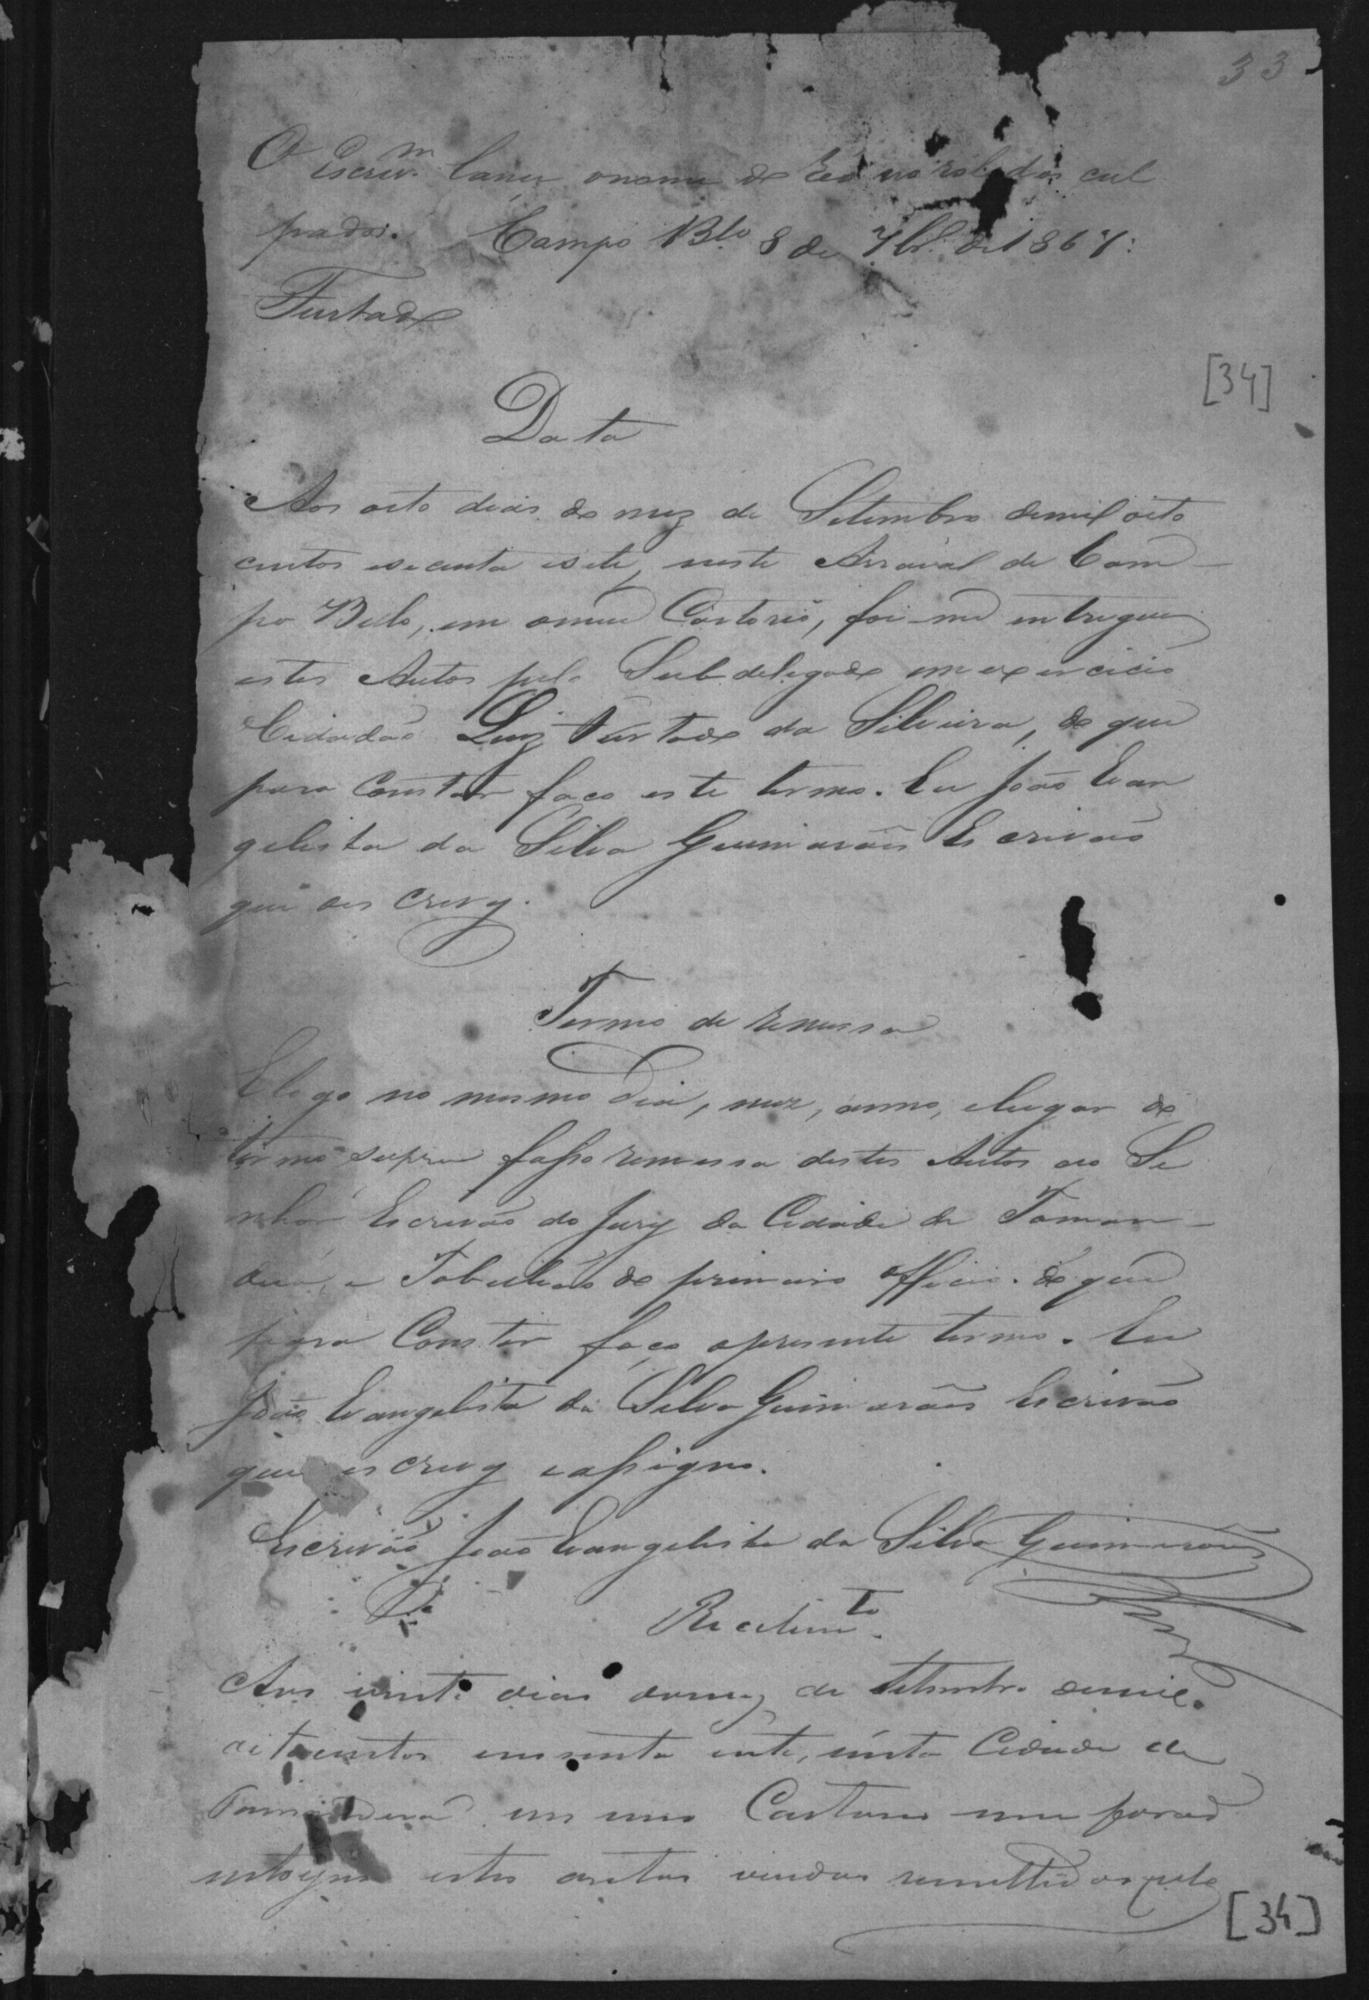 33
O Escrivᵐ lance o nome do Réo no rol dos cul
pados. Campo Bˡᵒ 8 de 7bʳᵒ de 1867.
Furtado
[34]
Data
Aos oito dias do mez de Setembro de mil oito
centos secenta e sete, neste Arraial de Cam-
po Bello, em o meu Cartorio, foi-me entregue
estes Autos pelo Subdelegado em exercicio
Cidadão Luiz Furtado da Silveira, do que
para constar faço este termo. Eu João Evan
gelista da Silva Guimarães Escrivão
que o escrevy.
Termo de remessa
E logo no mesmo dia, mez, anno, e lugar do
termo supra fasso remessa destes Autos ao Se
nhor Escrivão do Jury da Cidade de Taman-
duá, e Tabelião do primeiro officio. do que
para constar faço o presente termo. Eu
João Evangelista da Silva Guimarães Escrivão
que escrevy e assigno.
Escrivão João Evangelista da Silva Guimarães
Recebimᵗᵒ.
Aos vinte dias do mez de Setembro de mil
oitocentos e sessenta e sete, nesta Cidade de
Tamanduá em meu Cartorio me forão
entregues estes autos vindos remettidos pelo
[34]